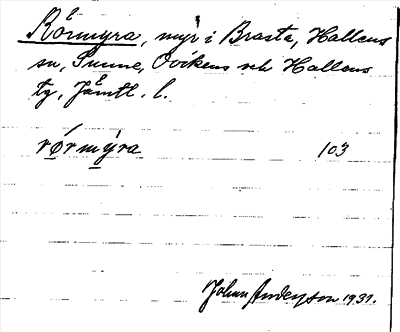 Rörmyra, myr i Brasta, Hallens
sn, Sunne, Ovikens och Hallens
tg, Jämtl. l.
rörmýra 103
Johan Anderson 1931.